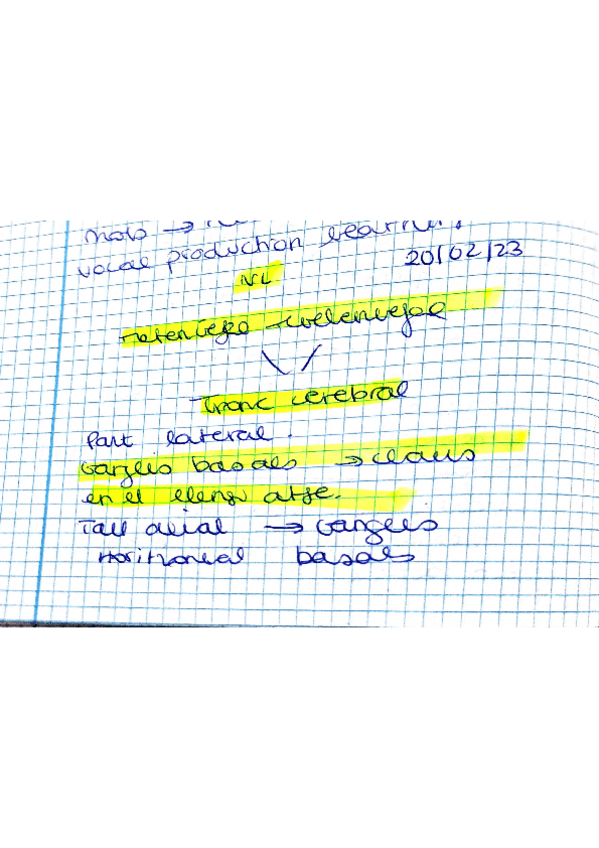 vocal production learning
20/02/23
NL
Tronc cerebral
Part lateral.
Ganglis basals → claus
en el llenguatge.
Tall axial → Ganglis
Horitzontal basals